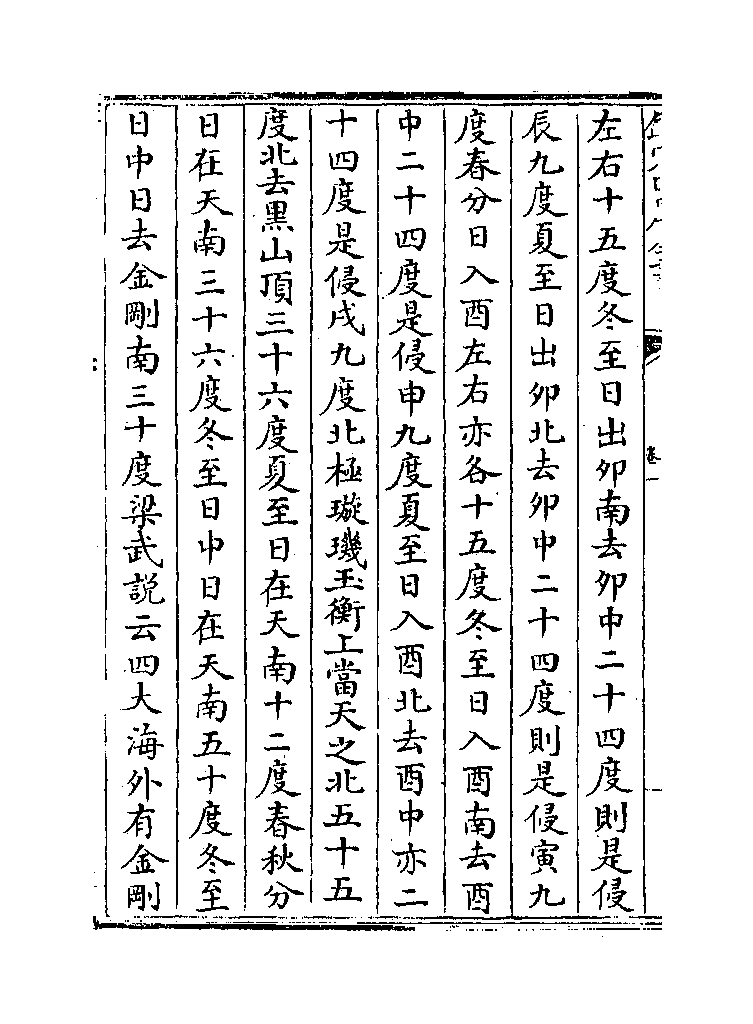 卷一
左右十五度冬至日出卯南去卯中二十四度則是侵
辰九度夏至日出卯北去卯中二十四度則是侵寅九
度春分日入酉左右亦各十五度冬至日入酉南去酉
中二十四度是侵申九度夏至日入酉北去酉中亦二
十四度是侵戌九度北極璇璣玉衡上當天之北五十五
度北去黑山頂三十六度夏至日在天南十二度春秋分
日在天南三十六度冬至日中日在天南五十度冬至
日中日去金剛南三十度梁武説云四大海外有金剛